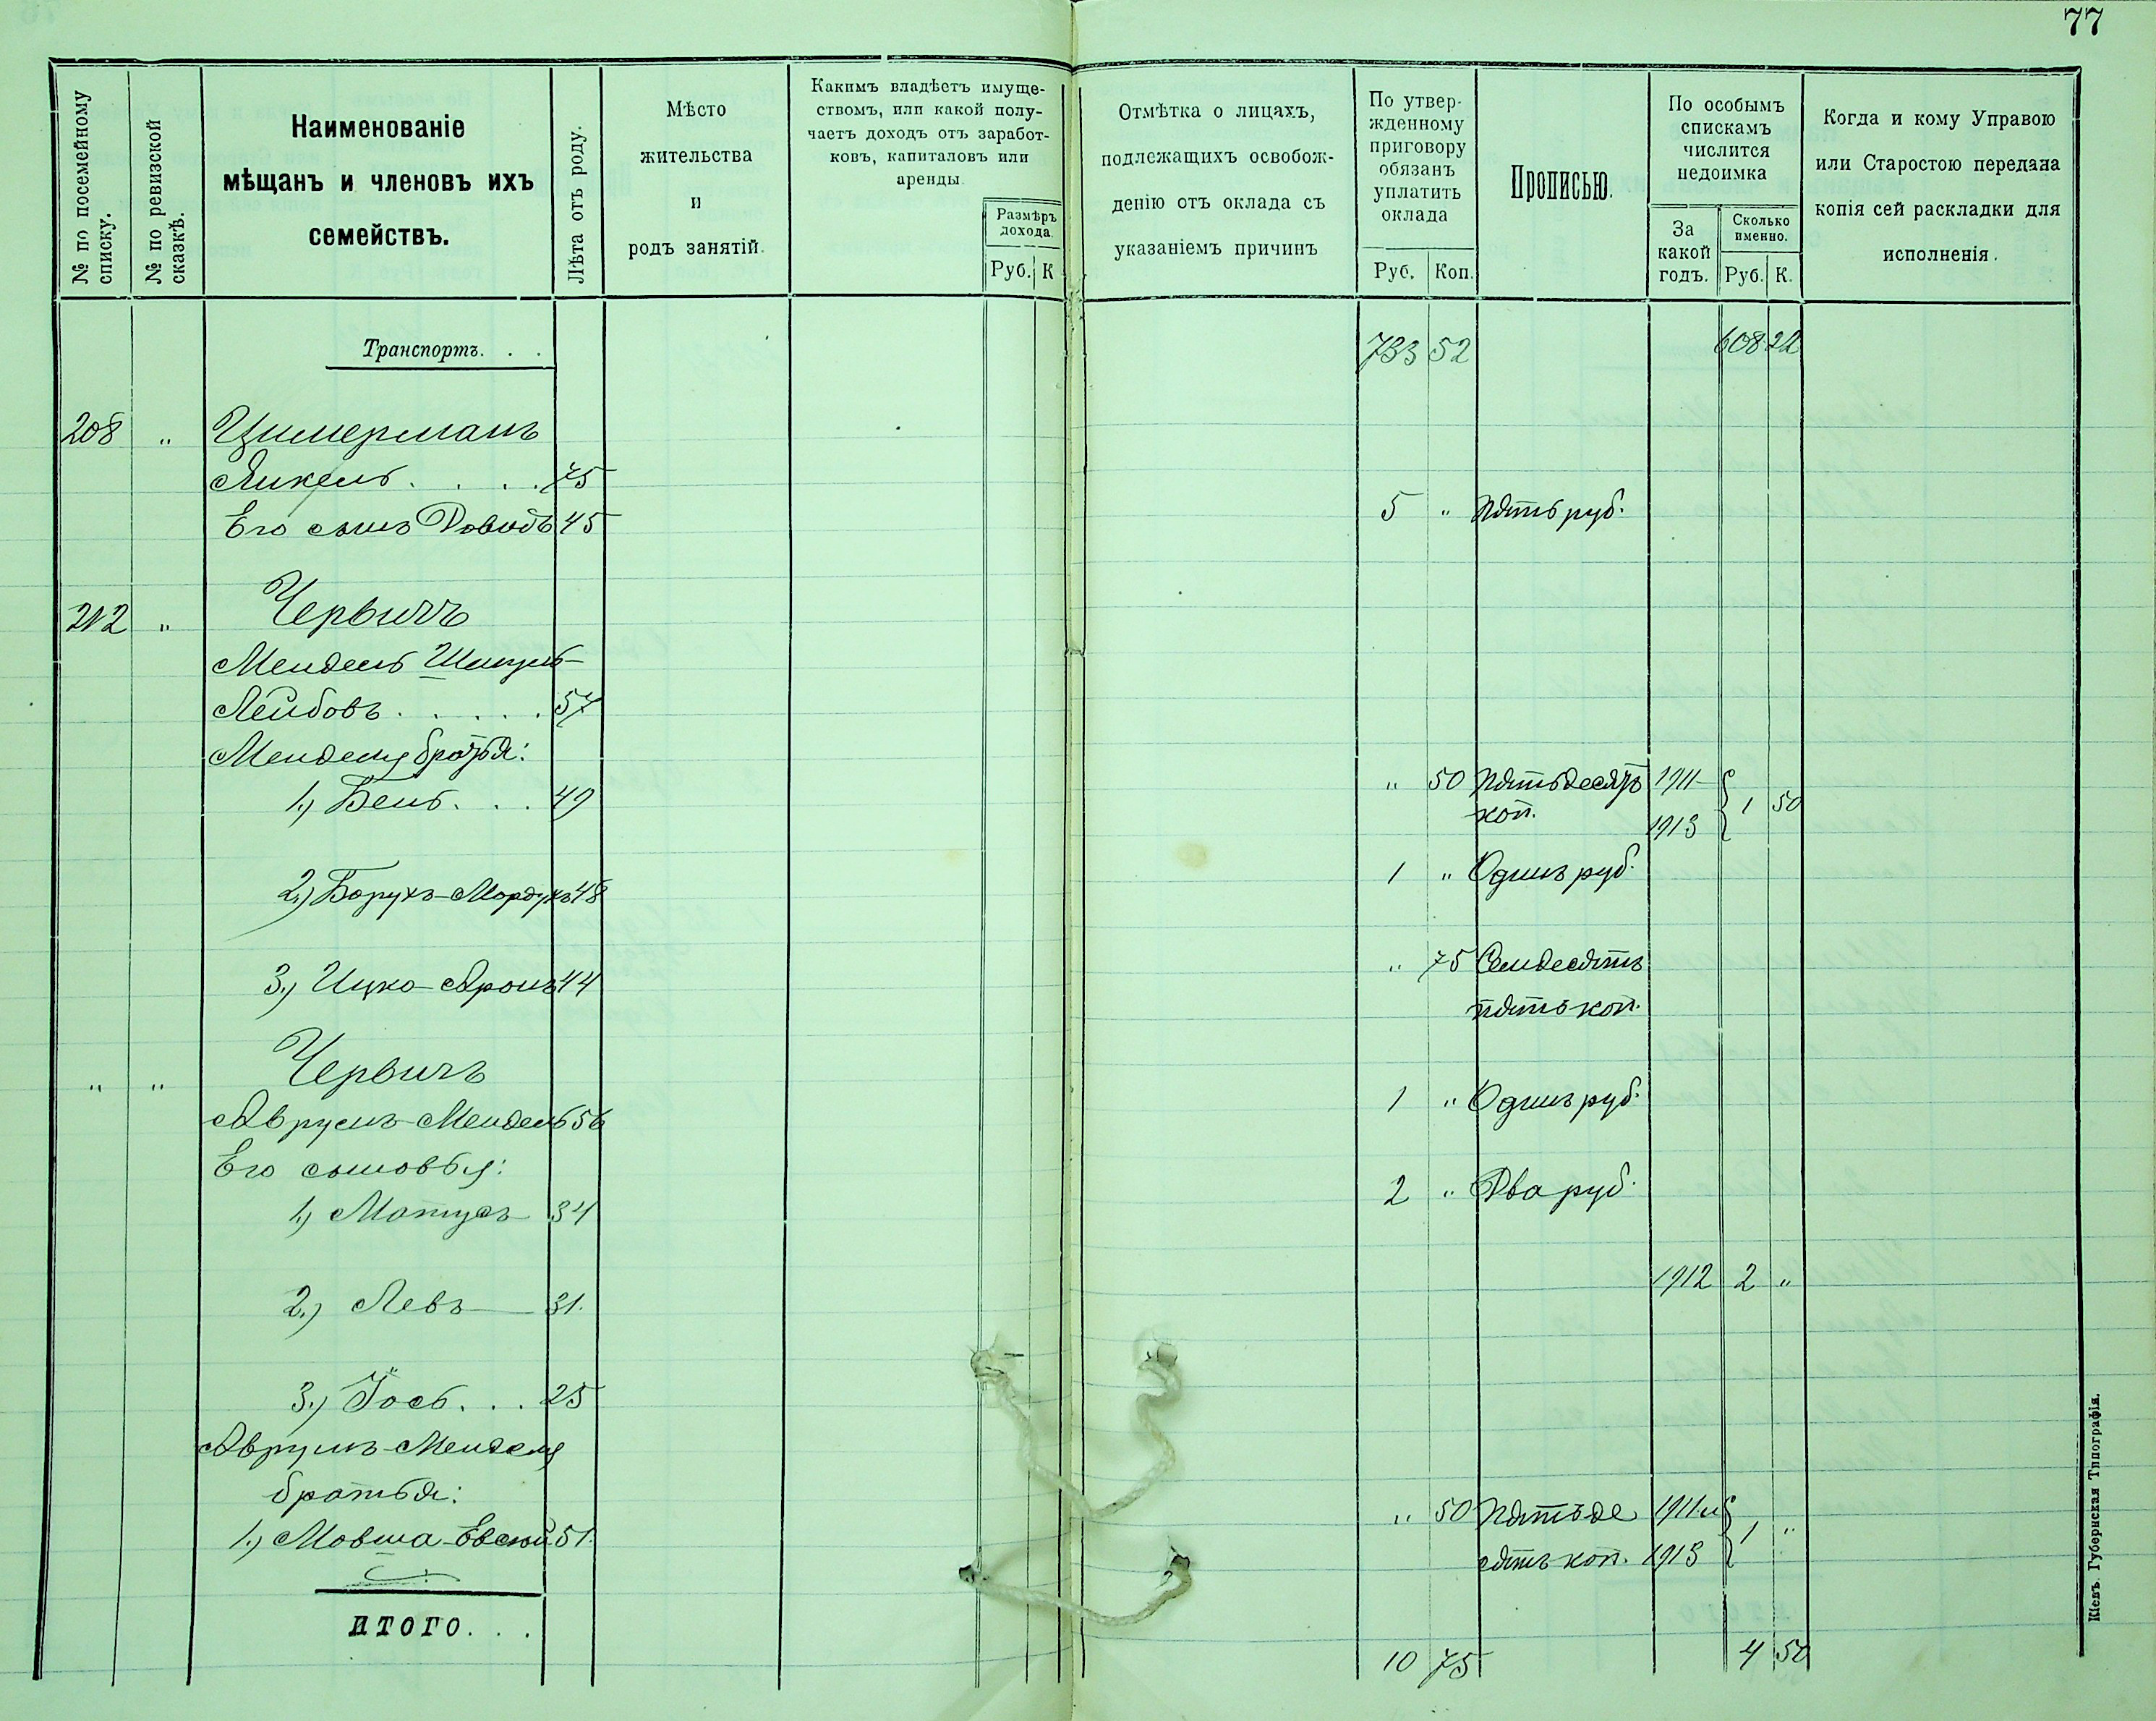 77
№ по посемейному списку.
№ по ревизской сказкѣ.
Наименованіе
мѣщанъ и членовъ ихъ
семействъ.
Лѣта отъ роду.
Мѣсто
жительства
и
родъ занятій.
Какимъ владѣетъ имуще-
ствомъ, или какой полу-
чаетъ доходъ отъ заработ-
ковъ, капиталовъ или
аренды
Размѣръ
дохода.
Руб. К
Отмѣтка о лицахъ,
подлежащихъ освобож-
денію отъ оклада съ
указаніемъ причинъ
По утвер-
жденному
приговору
обязанъ
уплатить
оклада
Руб. Коп.
Прописью.
По особымъ
спискамъ
числится
недоимка
За
какой
годъ.
Сколько
именно.
Руб. К.
Когда и кому Управою
или Старостою передана
копія сей раскладки для
исполненія.
Транспортъ. . . 733 52 608 22
208 „ Цимерманъ
Янкель . . . . 75
Его сынъ Довидъ 45 5 „ Пять руб.
212 „ Червичъ
Мендель
Лейбовъ . . . . . 57
Менделя братья:
1.) Бень . . . 49 „ 50 Пятьдесятъ 1911
коп. 1913 1 50
2.) Борухъ-Мордухъ 48 1 „ Одинъ руб.
3.) Ицко-Аронъ 44 „ 75 Семдесятъ
пять коп.
„ „ Червичъ
Аврумъ-Мендель 56 1 „ Одинъ руб.
Его сыновья:
1.) Мотусъ 34 2 „ Два руб.
2.) Левъ 31. 1912 2 „
3.) Іось . . . 25
Аврумъ-Менделя
братья:
1.) Мовша-Евсей 51. „ 50 Пятьде 1911 и
сятъ коп. 1913 1 „
ИТОГО. . . 10 75 4 50
Кіевъ. Губернская Типографія.